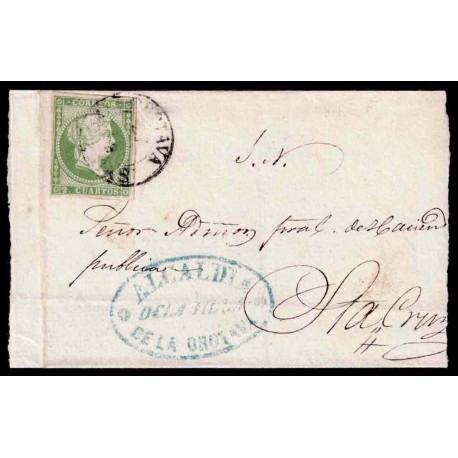 CORREOS
2. CUARTOS
OROTAVA
S. N.
Señor Admõn pral. de Haciend
publica
Sta Cruz
ALCALDIA
DE LA VILLA
DE LA OROTAVA